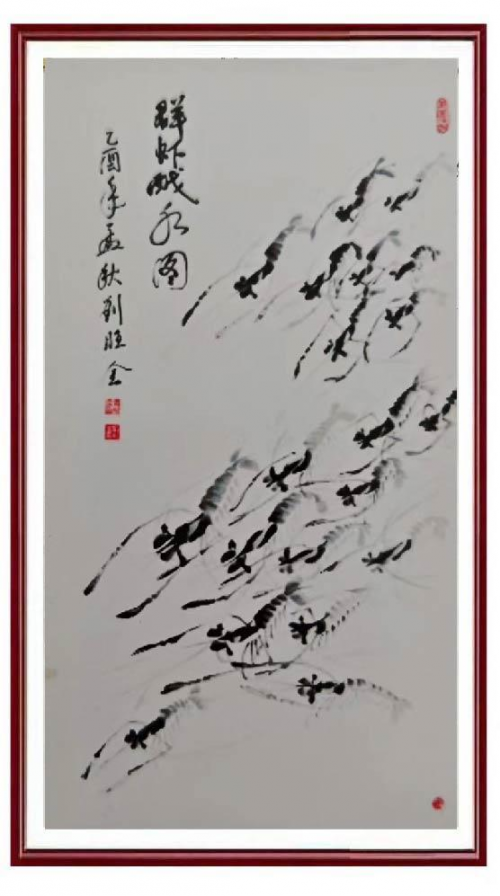 群虾戏水图
乙酉年孟秋刘旺全